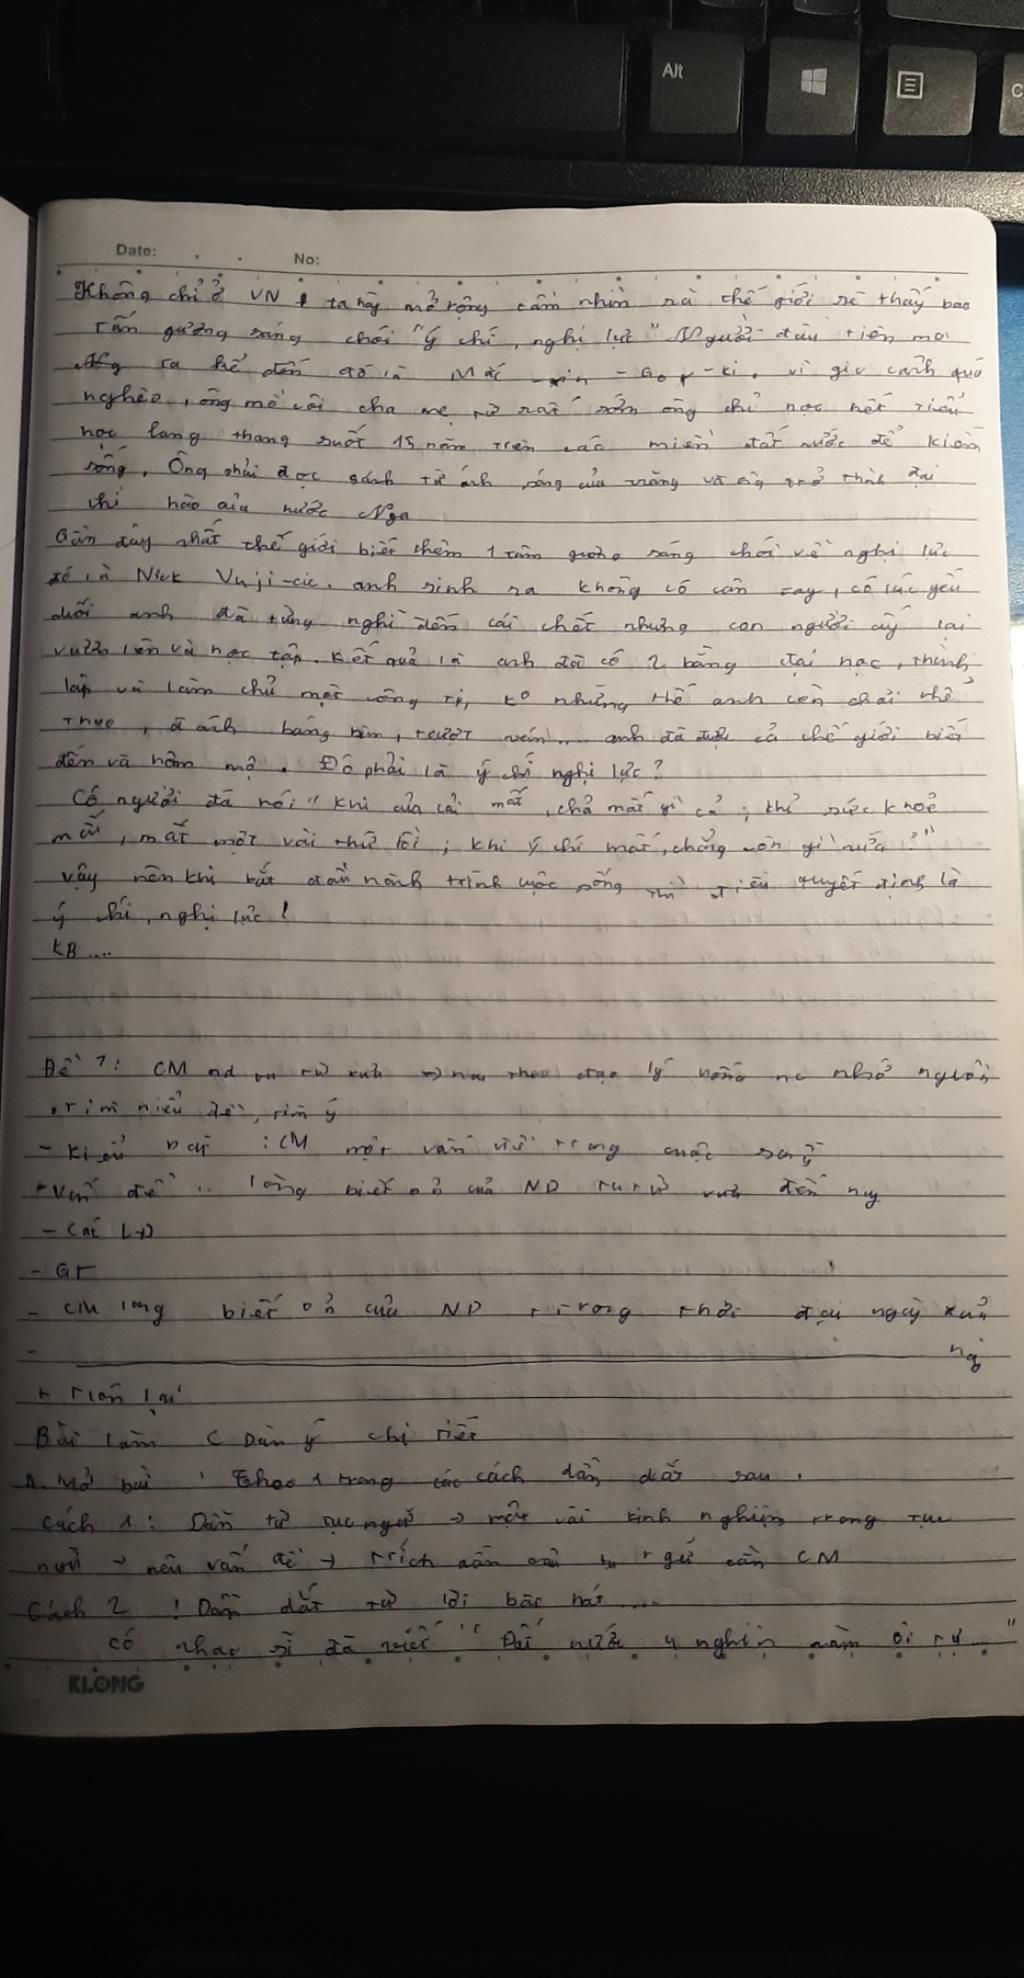 Alt
C
Date: No:
Không chỉ ở VN ta hãy mở rộng tầm nhìn ra thế giới sẽ thấy bao
tấm gương sáng chói "ý chí, nghị lực" Người đầu tiên mà
ra kể đến đó là Mác - xim - Go - r - ki. vì gia cảnh quá
nghèo, ông mồ côi cha mẹ từ rất sớm ông chỉ học hết tiểu
học lang thang suốt 15 năm trên các miền đất nước để kiếm
sống. Ông phải đọc sách từ ánh sáng của trăng và trở thành đại
thi hào của nước Nga
Gần đây nhất thế giới biết thêm 1 tấm gương sáng chói về nghị lực
đó là Nick Vuji-cic. anh sinh ra không có chân tay, có lúc yếu
đuối anh đã từng nghĩ đến cái chết nhưng con người ấy lại
vươn lên và học tập. Kết quả là anh đã có 2 bằng đại học, thành
lập và làm chủ một công ti, ko những thế anh còn chơi thể
thao, đánh bóng, bơi, lướt ván.... anh đã được cả thế giới biết
đến và hâm mộ. Đó phải là ý chí nghị lực?
Có người đã nói "khi của cải mất, chả mất gì cả; khi sức khoẻ
mất, mất một vài thứ rồi; khi ý chí mất, chẳng còn gì nữa"
vậy nên khi bắt đầu hành trình cuộc sống thì điều quyết định là
ý chí, nghị lực!
KB....
Đề 7: CM nd ta từ xưa → nay theo đạo lý uống nc nhớ nguồn
. Tìm hiểu đề, tìm ý
- Kiểu bài : CM một vấn đề trong cuộc sống
+ Vấn đề .. lòng biết ơn của ND ta từ xưa đến nay
- Các LĐ
- GT
- CM lòng biết ơn của ND trong thời đại ngày xưa
- nay
+ Tóm lại
Bài làm ( Dàn ý chi tiết
A. Mở bài : Theo 1 trong các cách dẫn dắt sau.
Cách 1: Dẫn từ tục ngữ → một vài kinh nghiệm trong tục
ngữ → nêu vấn đề → trích dẫn câu tục ngữ cần CM
Cách 2 : Dẫn dắt từ lời bài hát....
có nhạc sĩ đã viết "Đất nước 4 nghìn năm ...."
KLONG